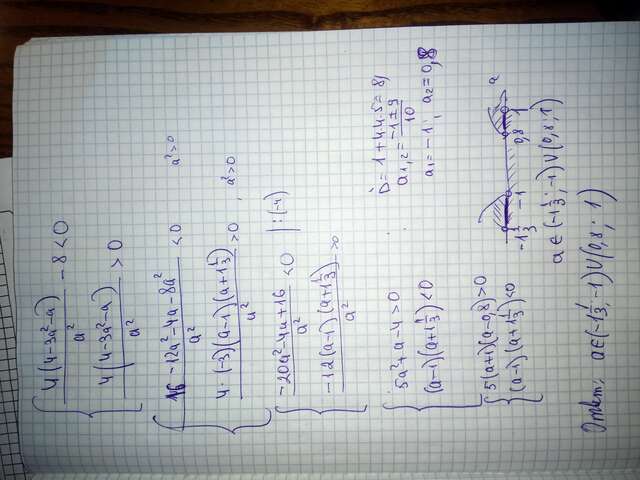 4(4-3a²-a)/a² - 8 < 0
4(4-3a²-a)/a² > 0
(16-12a²-4a-8a²)/a² < 0 a² > 0
4·(-3)(a-1)(a+1 1/3)/a² > 0, a² > 0
(-20a²-4a+16)/a² < 0 |:(-4)
-12(a-1)(a+1 1/3)/a² > 0
5a²+a-4 > 0
(a-1)(a+1 1/3) < 0
D = 1+4·4·5 = 81
a₁,₂ = (-1±9)/10
a₁ = -1; a₂ = 0,8
5(a+1)(a-0,8) > 0
(a-1)(a+1 1/3) < 0
-1 1/3 -1 0,8 1 a
a ∈ (-1 1/3; -1) ∪ (0,8; 1)
Ответ: a ∈ (-1 1/3; -1) ∪ (0,8; 1)